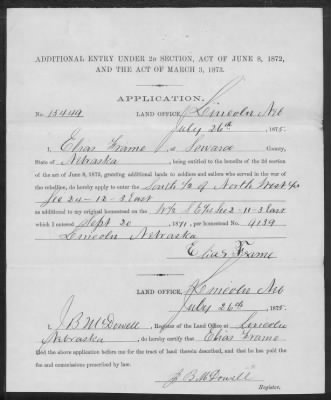 ADDITIONAL ENTRY UNDER 2D SECTION, ACT OF JUNE 8, 1872,
AND THE ACT OF MARCH 3, 1873.
APPLICATION.
No. 15449 LAND OFFICE, Lincoln Neb
July 26th, 1875.
I, Elias Frame of Seward County,
State of Nebraska, being entitled to the benefits of the 2d section
of the act of June 8, 1872, granting additional lands to soldiers and sailors who served in the war
of the rebellion, do hereby apply to enter the South ½ of North West ¼
Sec 24-12-3 East
as additional to my original homestead on the W½ S E¼ Sec 2-11-3 East
which I entered Sept 20, 1871, per homestead No. 9139
Lincoln Nebraska
Elias Frame
LAND OFFICE, Lincoln Neb
July 26th, 1875.
I, J B McDowell, Register of the Land Office at Lincoln
Nebraska, do hereby certify that Elias Frame
filed the above application before me for the tract of land therein described, and that he has paid the
fee and commissions prescribed by law.
J B McDowell
Register.